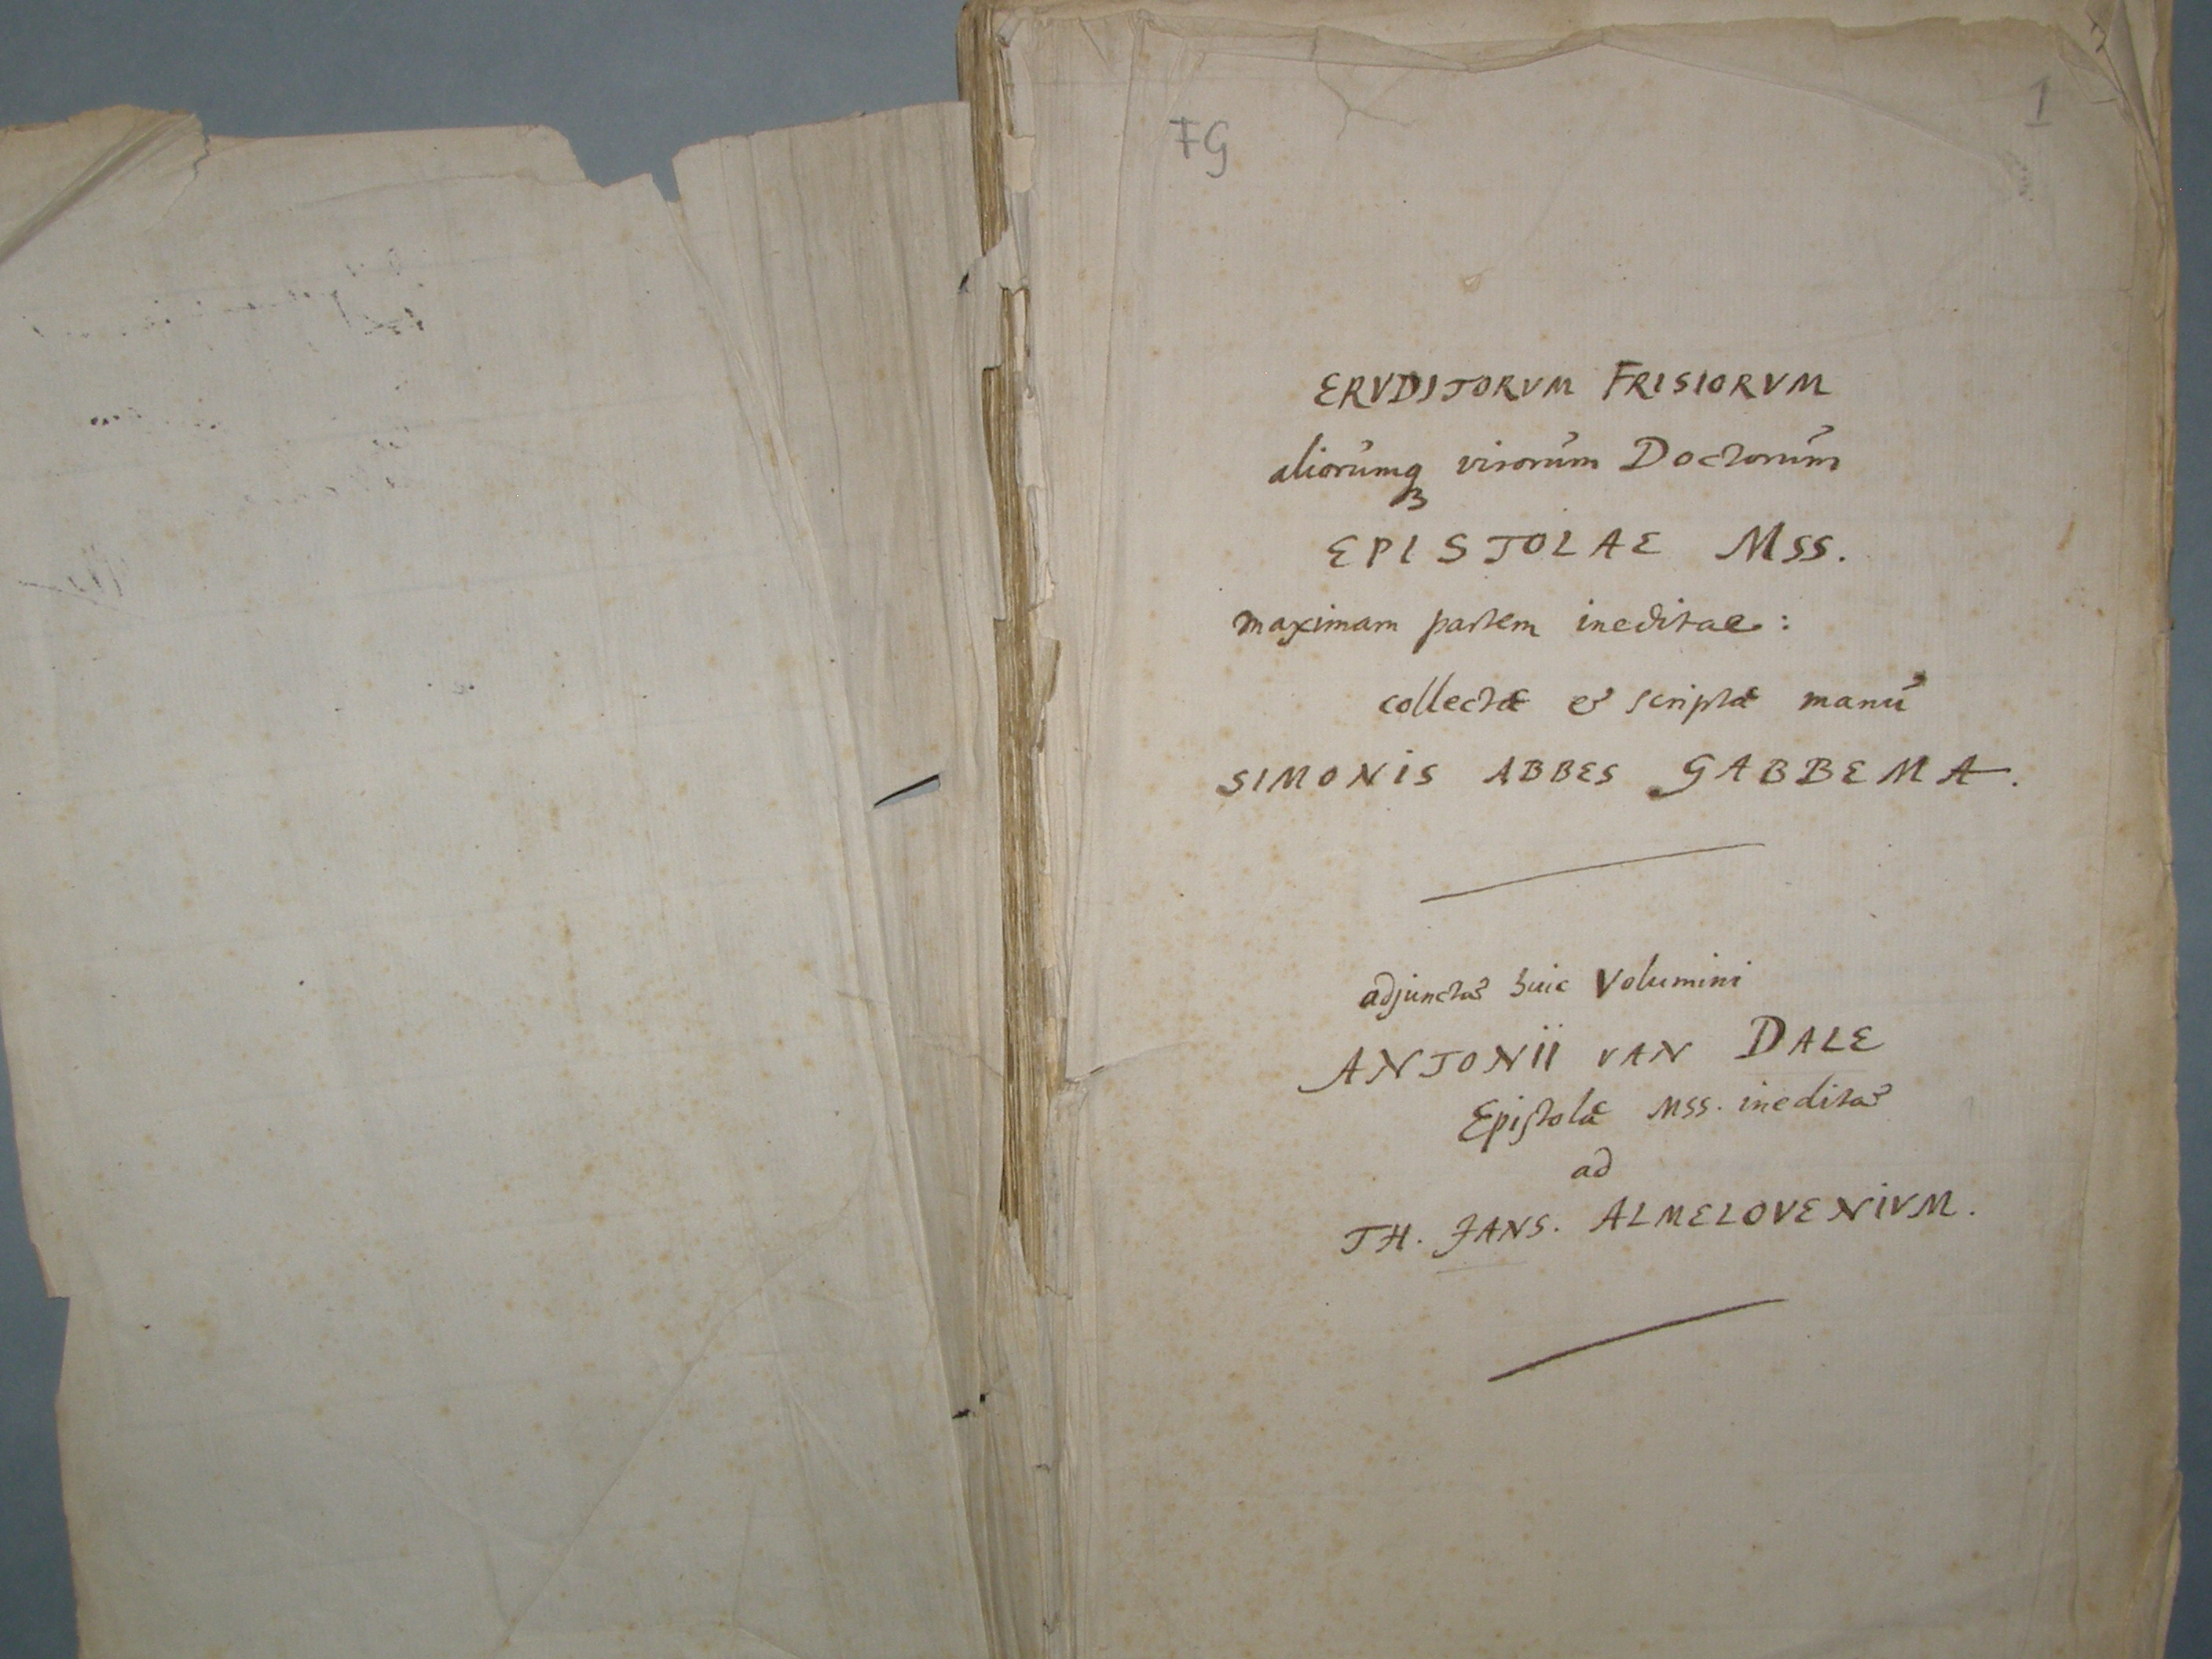 FG
1
ERVDITORVM FRISIORVM
aliorumq3 virorum Doctorum
EPISTOLAE Mss.
maximam partem ineditae:
collectæ & scriptæ manu
SIMONIS ABBES GABBEMA.
adjunctæ huic Volumini
ANTONII VAN DALE
Epistolæ Mss. ineditæ
ad
TH. JANS. ALMELOVENIVM.